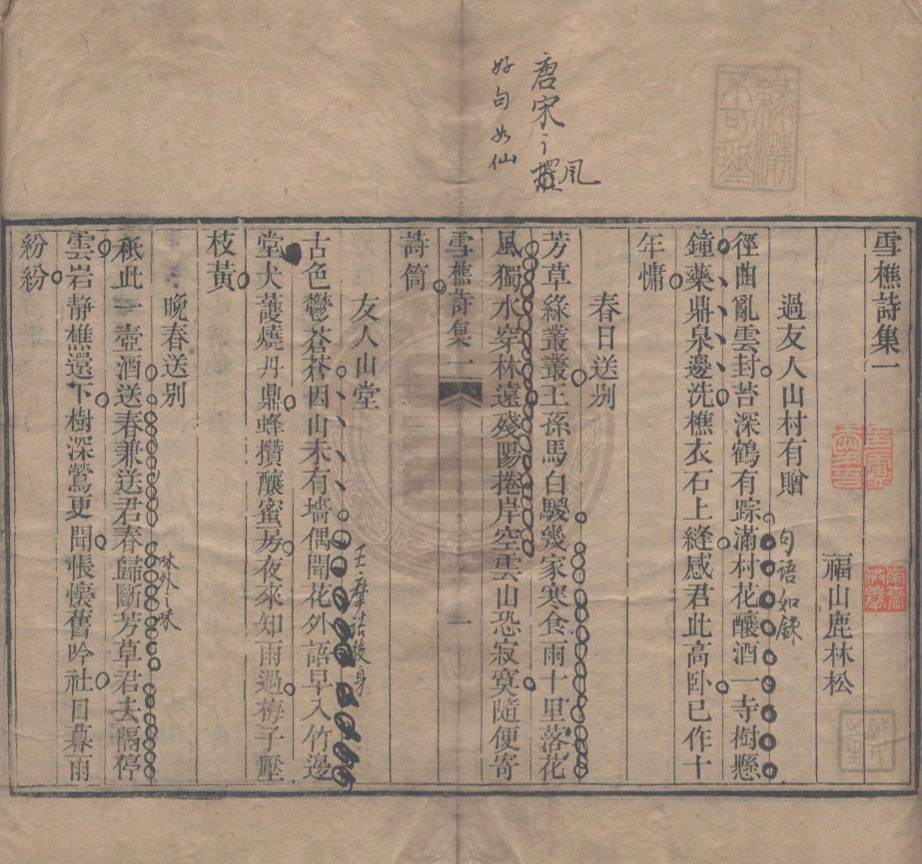 雪樵詩集一
福山鹿林松
過友人山村有贈
句語如錄
徑曲亂雲封苔深鶴有踪滿村花釀酒一寺樹懸
鐘藥鼎泉邊洗樵衣石上縫感君此高卧已作十
年慵
春日送別
芳草綠叢叢王孫馬白騣幾家寒食雨十里落花
風獨水穿林遠殘陽捲岸空雲山恐寂寞隨便寄
詩筒
雪樵詩集一
一
唐宋之
風
好句如仙
友人山堂
古色鬱蒼蒼因山未有墻偶聞花外語早入竹邊
王摩詰後身
堂犬護燒丹鼎蜂攢釀蜜房夜來知雨過梅子壓
枝黃
晚春送別
味外之味
秪此一壺酒送春兼送君春歸斷芳草君去隔停
雲岩靜樵還下樹深鶯更聞悵懷舊吟社日暮雨
紛紛